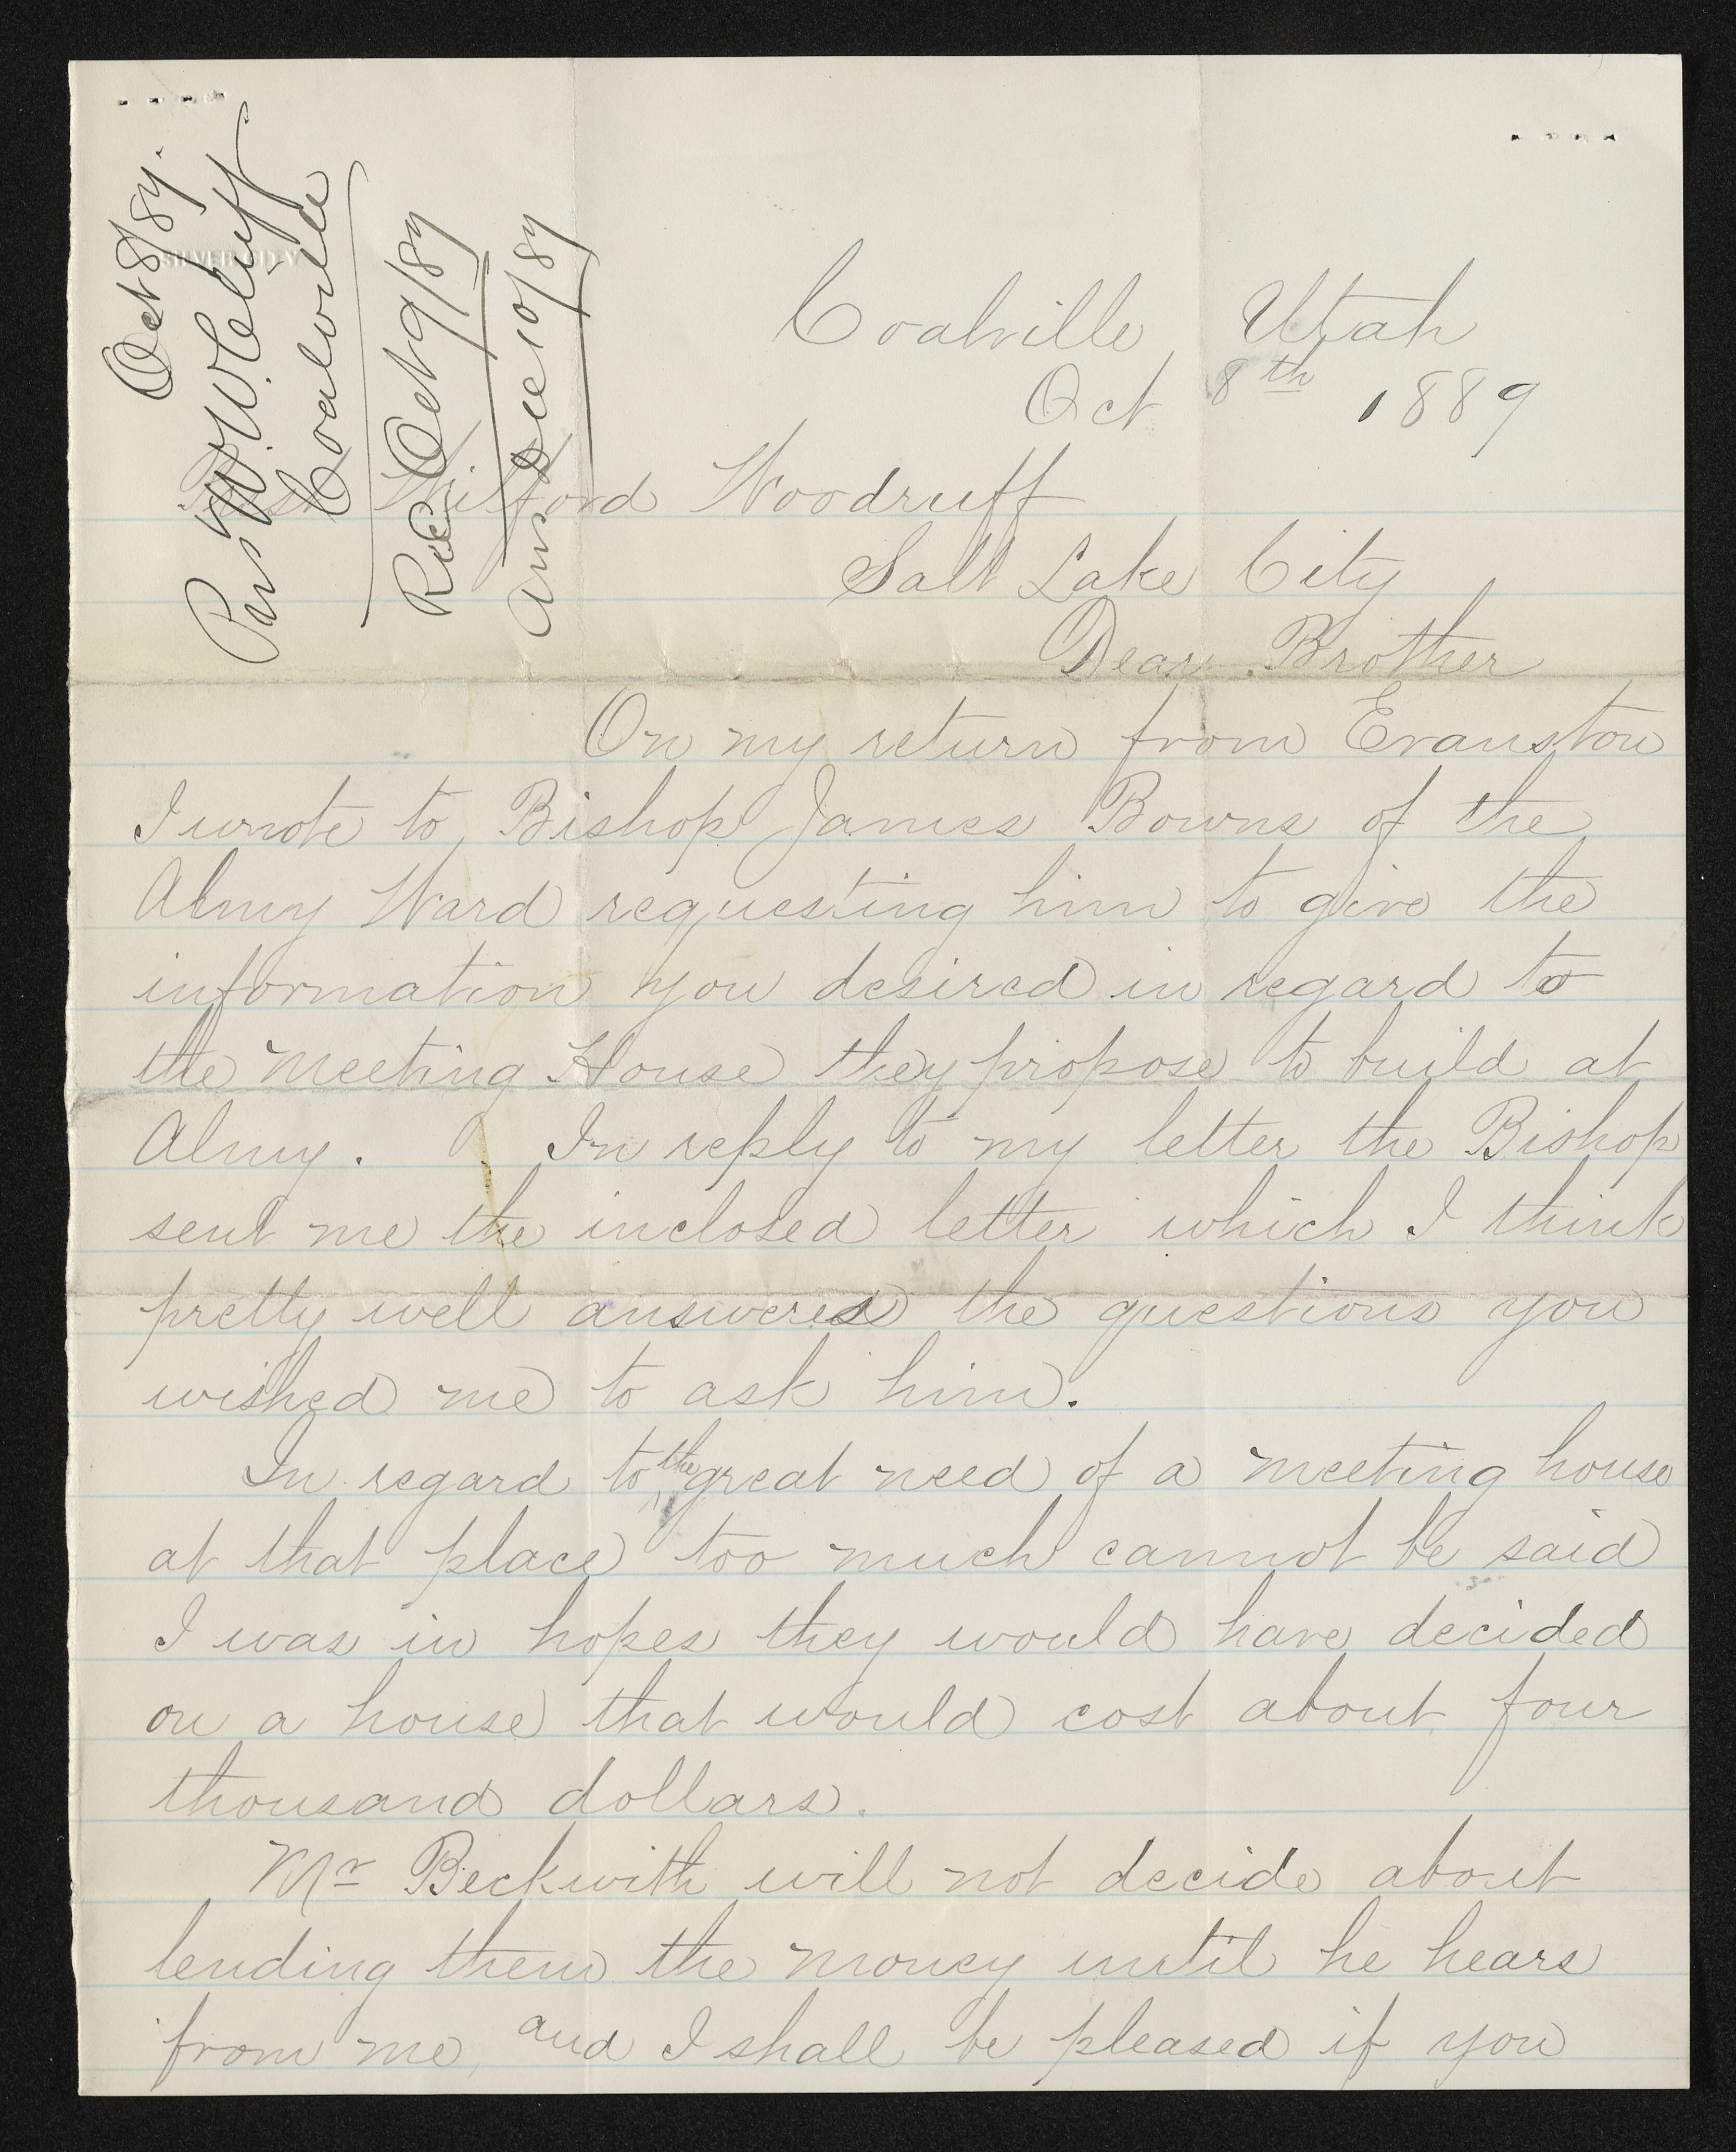 Oct 8/89.
Pres W. W. Cluff
Coalville
Rec Oct 9/89
Ans Dec 10/89
SILVER CITY
Coalville Utah
Oct 8th 1889
Pres. Wilford Woodruff
Salt Lake City
Dear Brother
On my return from Evanston
I wrote to Bishop James Bowns of the
Almy Ward requesting him to give the
information you desired in regard to
the Meeting House they propose to build at
Almy. In reply to my letter the Bishop
sent me the inclosed letter which I think
pretty well answeres the questions you
wished me to ask him.
In regard to the great need of a meeting house
at that place too much cannot be said
I was in hopes they would have decided
on a house that would cost about four
thousand dollars.
Mr Beckwith will not decide about
lending them the money until he hears
from me, and I shall be pleased if you